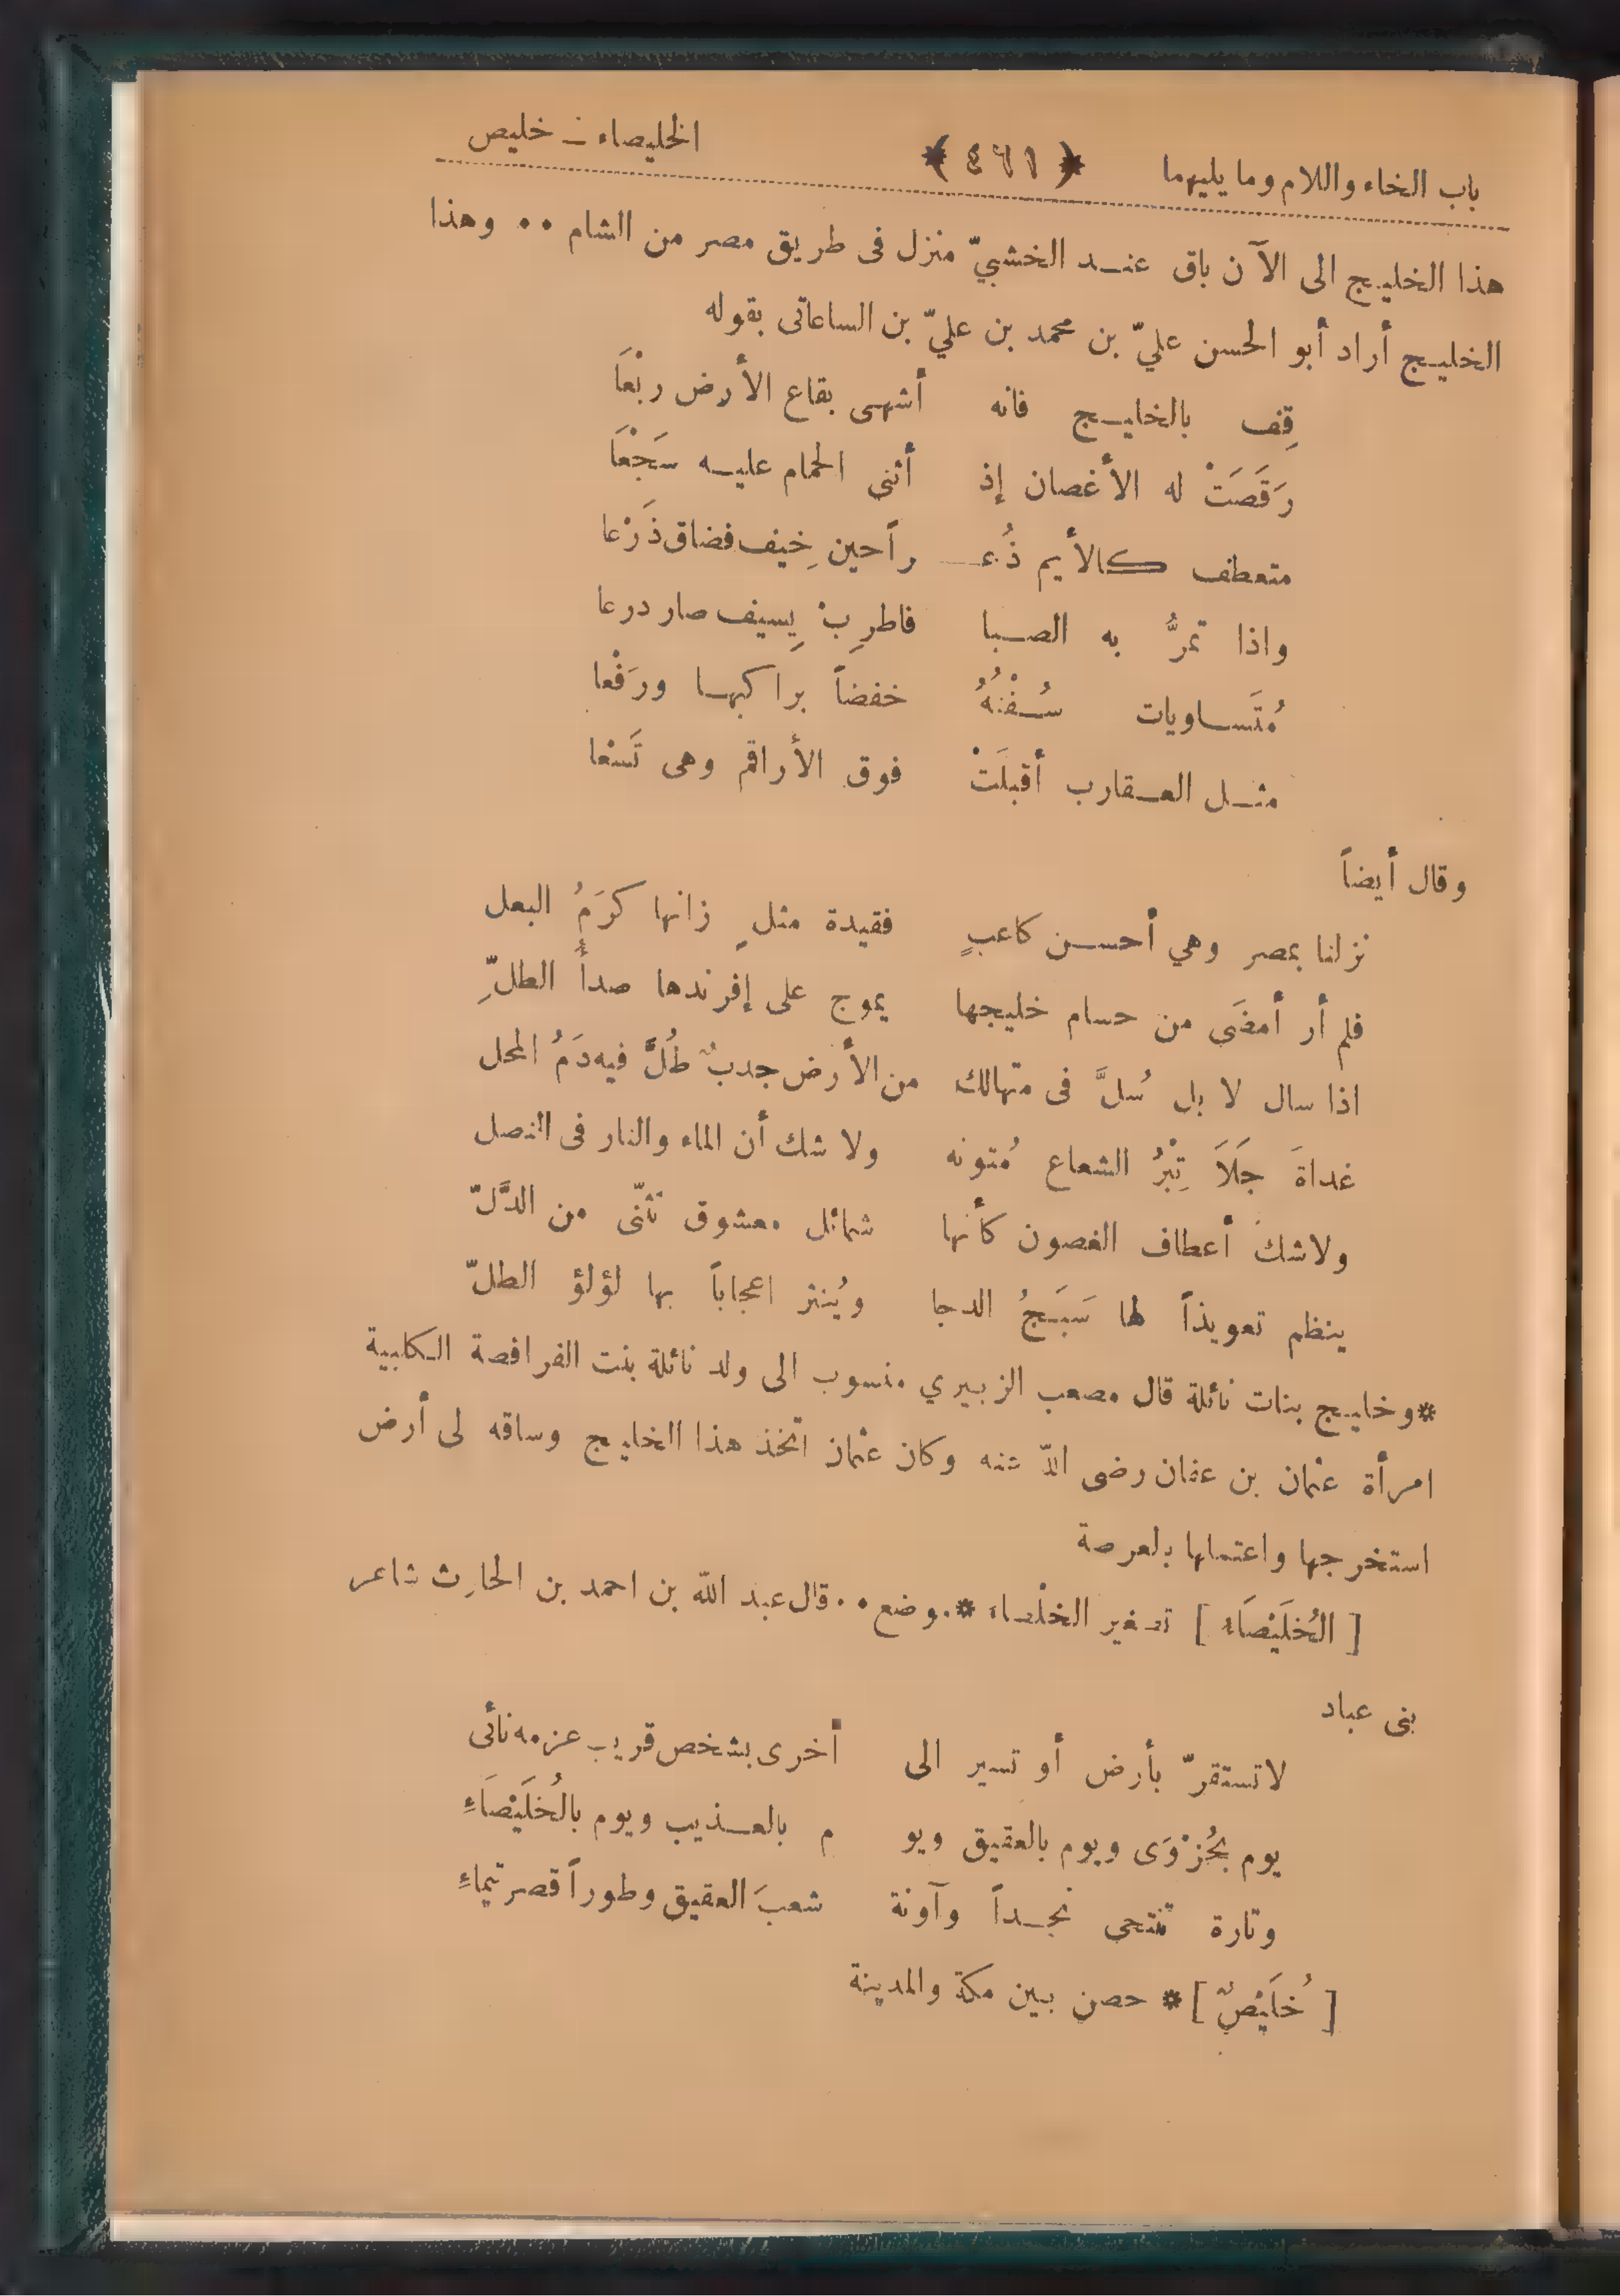 باب الخاء واللام وما يليهما ﴿ ٤٦١ ﴾ الخليصاء ـ خليص
هذا الخليج الى الآن باق عند الخشبيّ منزل فى طريق مصر من الشام ٠٠ وهذا
الخليج أراد أبو الحسن عليّ بن محمد بن عليّ بن الساعاتى بقوله
قِف بالخليج فانه أشهى بقاع الأرض ربْعَا
رَقَصَتْ له الأغصان إذ أثنى الحمام عليه سَجْعَا
متعطف كالأيم ذُعـ راً حين خِيف فضاق ذَرْعا
واذا تمرُّ به الصبا فاطرِبْ بِسيف صار درعا
مُتَساويات سُفْنُهُ خفضاً براكبها ورَفْعا
مثل العقارب أقبلَتْ فوق الأراقم وهى تَسْعا
وقال أيضاً
نزلنا بمصر وهي أحسن كاعبٍ فقيدة مثلٍ زانها كرَمُ البعل
فلم أر أمضَى من حسام خليجها يموج على إفرندها صدأُ الطلِّ
اذا سال لا بل سُلَّ فى متهالك من الأرض جدبٌ طُلَّ فيه دَمُ المحل
غداةَ جَلاَ تِبْرُ الشعاع مُتونه ولا شك أن الماء والنار فى النصل
ولاشك أعطاف الغصون كأنها شمائل معشوق تثنّى من الدَّلّ
ينظم تعويذاً لها سَبَجُ الدجا ويُنثر اعجاباً بها لؤلؤ الطلّ
*وخليج بنات نائلة قال مصعب الزبيري منسوب الى ولد نائلة بنت الفرافصة الكلبية
امرأة عثمان بن عفان رضى اللّه عنه وكان عثمان اتخذ هذا الخليج وساقه لى أرض
استخرجها واعتملها بالعرصة
[ الخُلَيْصَاء ] تصغير الخلْصاء *موضع ٠٠ قال عبد اللّه بن احمد بن الحارث شاعر
بنى عباد
لاتستقرّ بأرض أو تسير الى أخرى بشخص قريب عزمه نائى
يوم بحُزْوَى ويوم بالعقيق ويو م بالعذيب ويوم بالخُلَيْصَاءِ
وتارة تنتحى نجداً وآونة شعبَ العقيق وطوراً قصر تيماءِ
[ خُلَيْصٌ ] * حصن بين مكة والمدينة